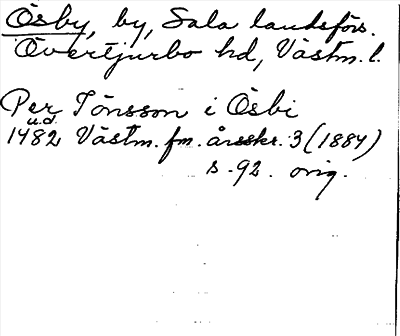 Ösby, by, Sala landsförs.
Övertjurbo hd, Västm. l.
Per Jönsson i Ösbi
u.d.
1482 Västm. fm. årsskr. 3 (1884)
s. 92. orig.